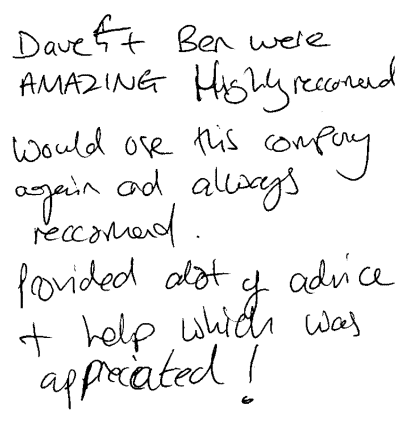 Dave + Ben were
AMAZING Highly reccomend
Would use this company
again and always
reccomend.
Provided alot of advice
+ help which was
appreciated!